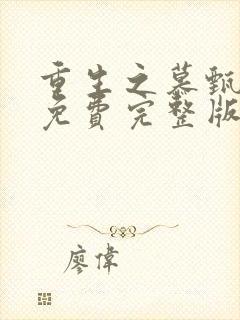 重生之慕甄
免費完整版
廖偉